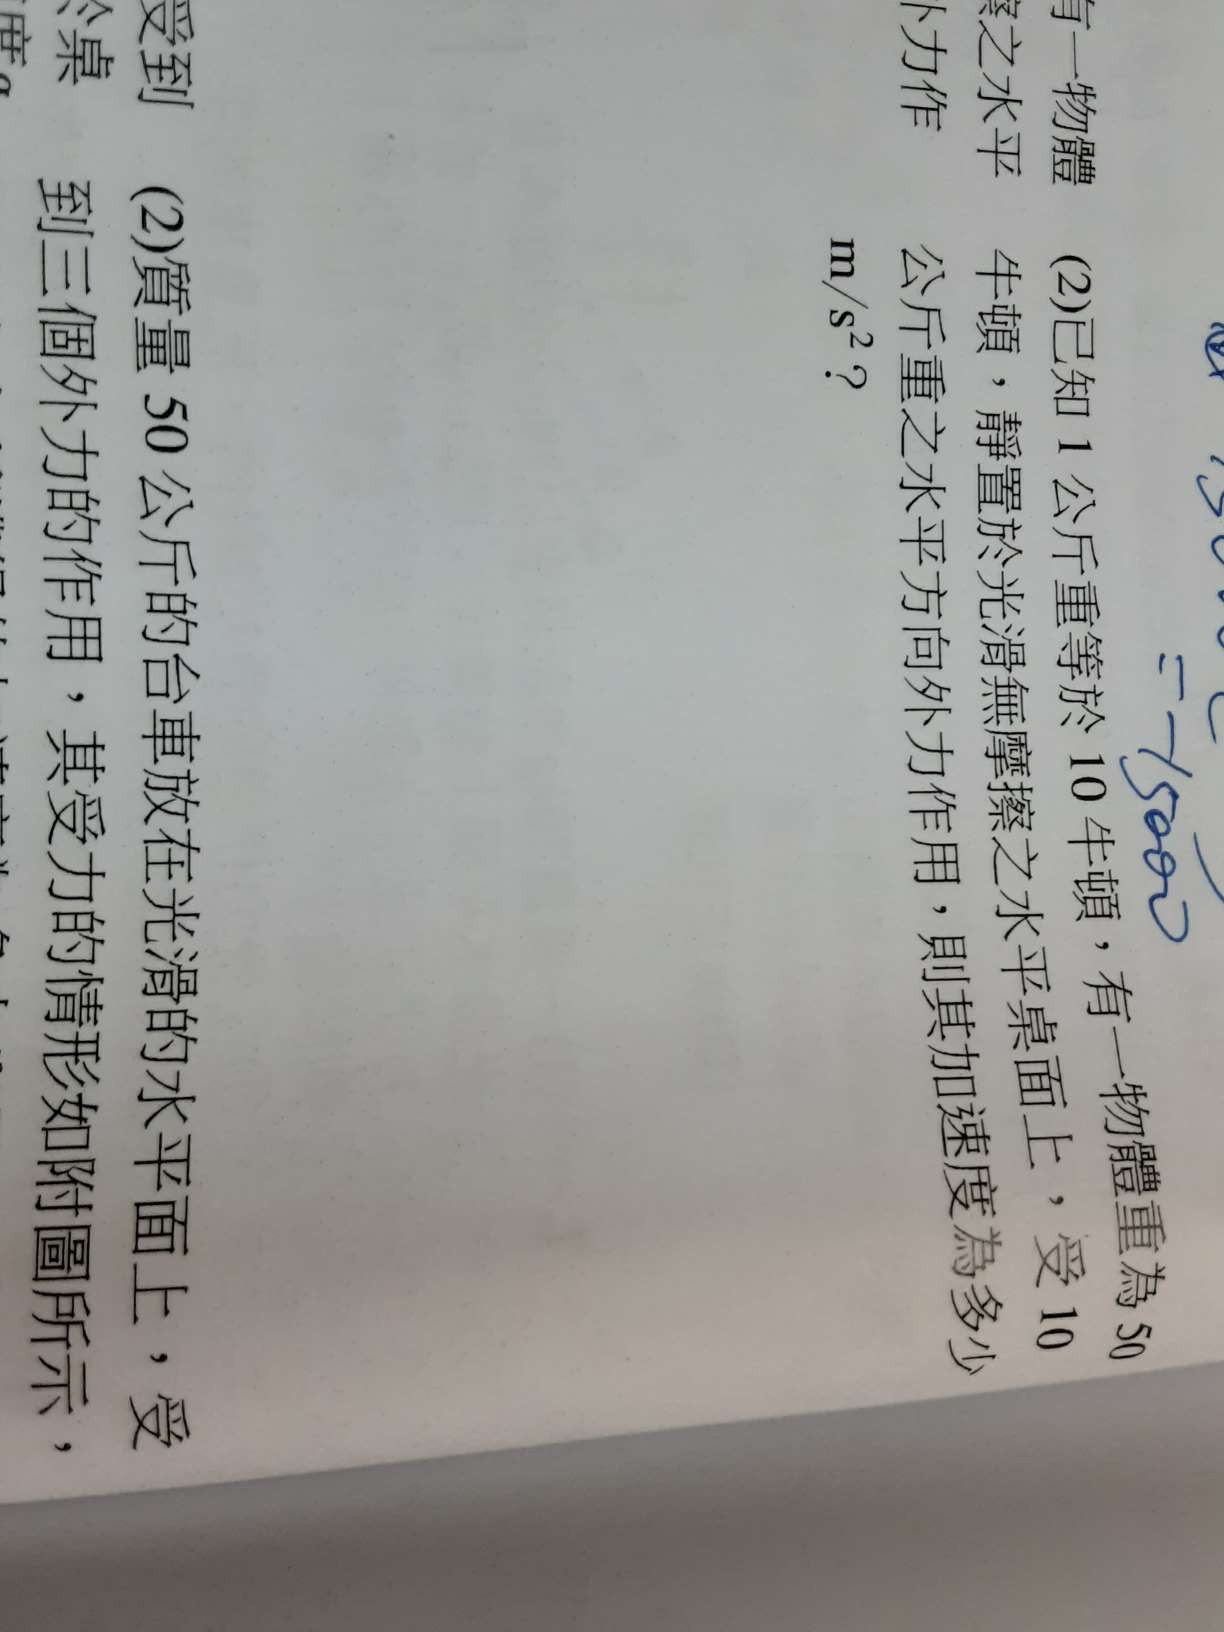 有一物體
察之水平
卜力作
(2)已知 1 公斤重等於 10 牛頓，有一物體重為 50
牛頓，靜置於光滑無摩擦之水平桌面上，受 10
公斤重之水平方向外力作用，則其加速度為多少
m/s²？
= -15000
受到
於桌
度
(2)質量 50 公斤的台車放在光滑的水平面上，受
到三個外力的作用，其受力的情形如附圖所示，